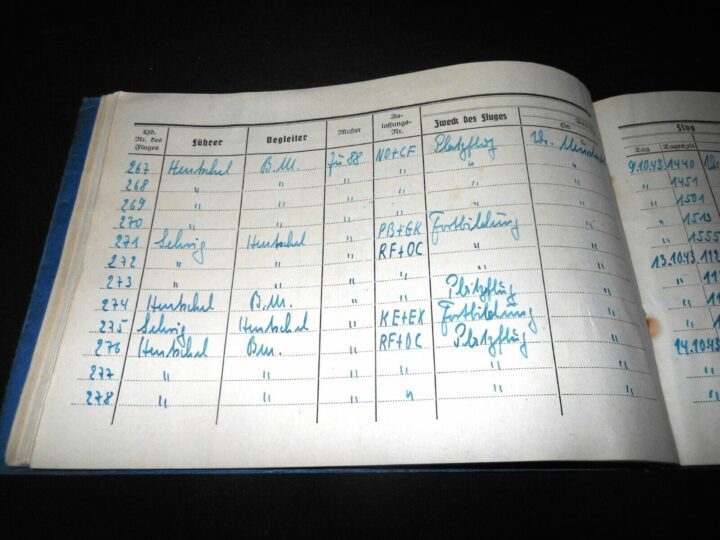 Lfd. Nr. des Fluges Führer Begleiter Muster Zu- lassungs- Nr. Zweck des Fluges Ort Flug Tag Tageszeit
267 Hentschel B.M. Ju 88 NO+CF Platzflug 9.10.43 1440
268 " " " " " " " 1451
269 " " " " " " " 1501
270 " " " " " " " 1513
271 Selwig Hentschel " PB+GK Fortbildung " " 1555
272 " " " RF+OC " " 13.10.43
273 " " " " " " "
274 Hentschel B.M. " " Platzflug " "
275 Selwig Hentschel " KE+EX Fortbildung " "
276 Hentschel B.M. " RF+OC Platzflug " 14.10.43
277 " " " " " " "
278 " " " " " " "